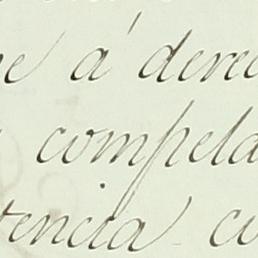 e á derec
compela
tencia cu